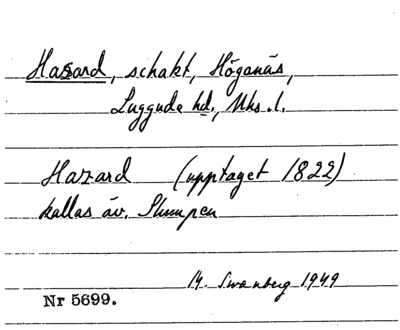 Hasard, schakt, Höganäs,
Luggude hd., Mhs. l.
Hazard (upptaget 1822)
kallas äv. Slumpen
14. Swanberg 1949
Nr 5699.